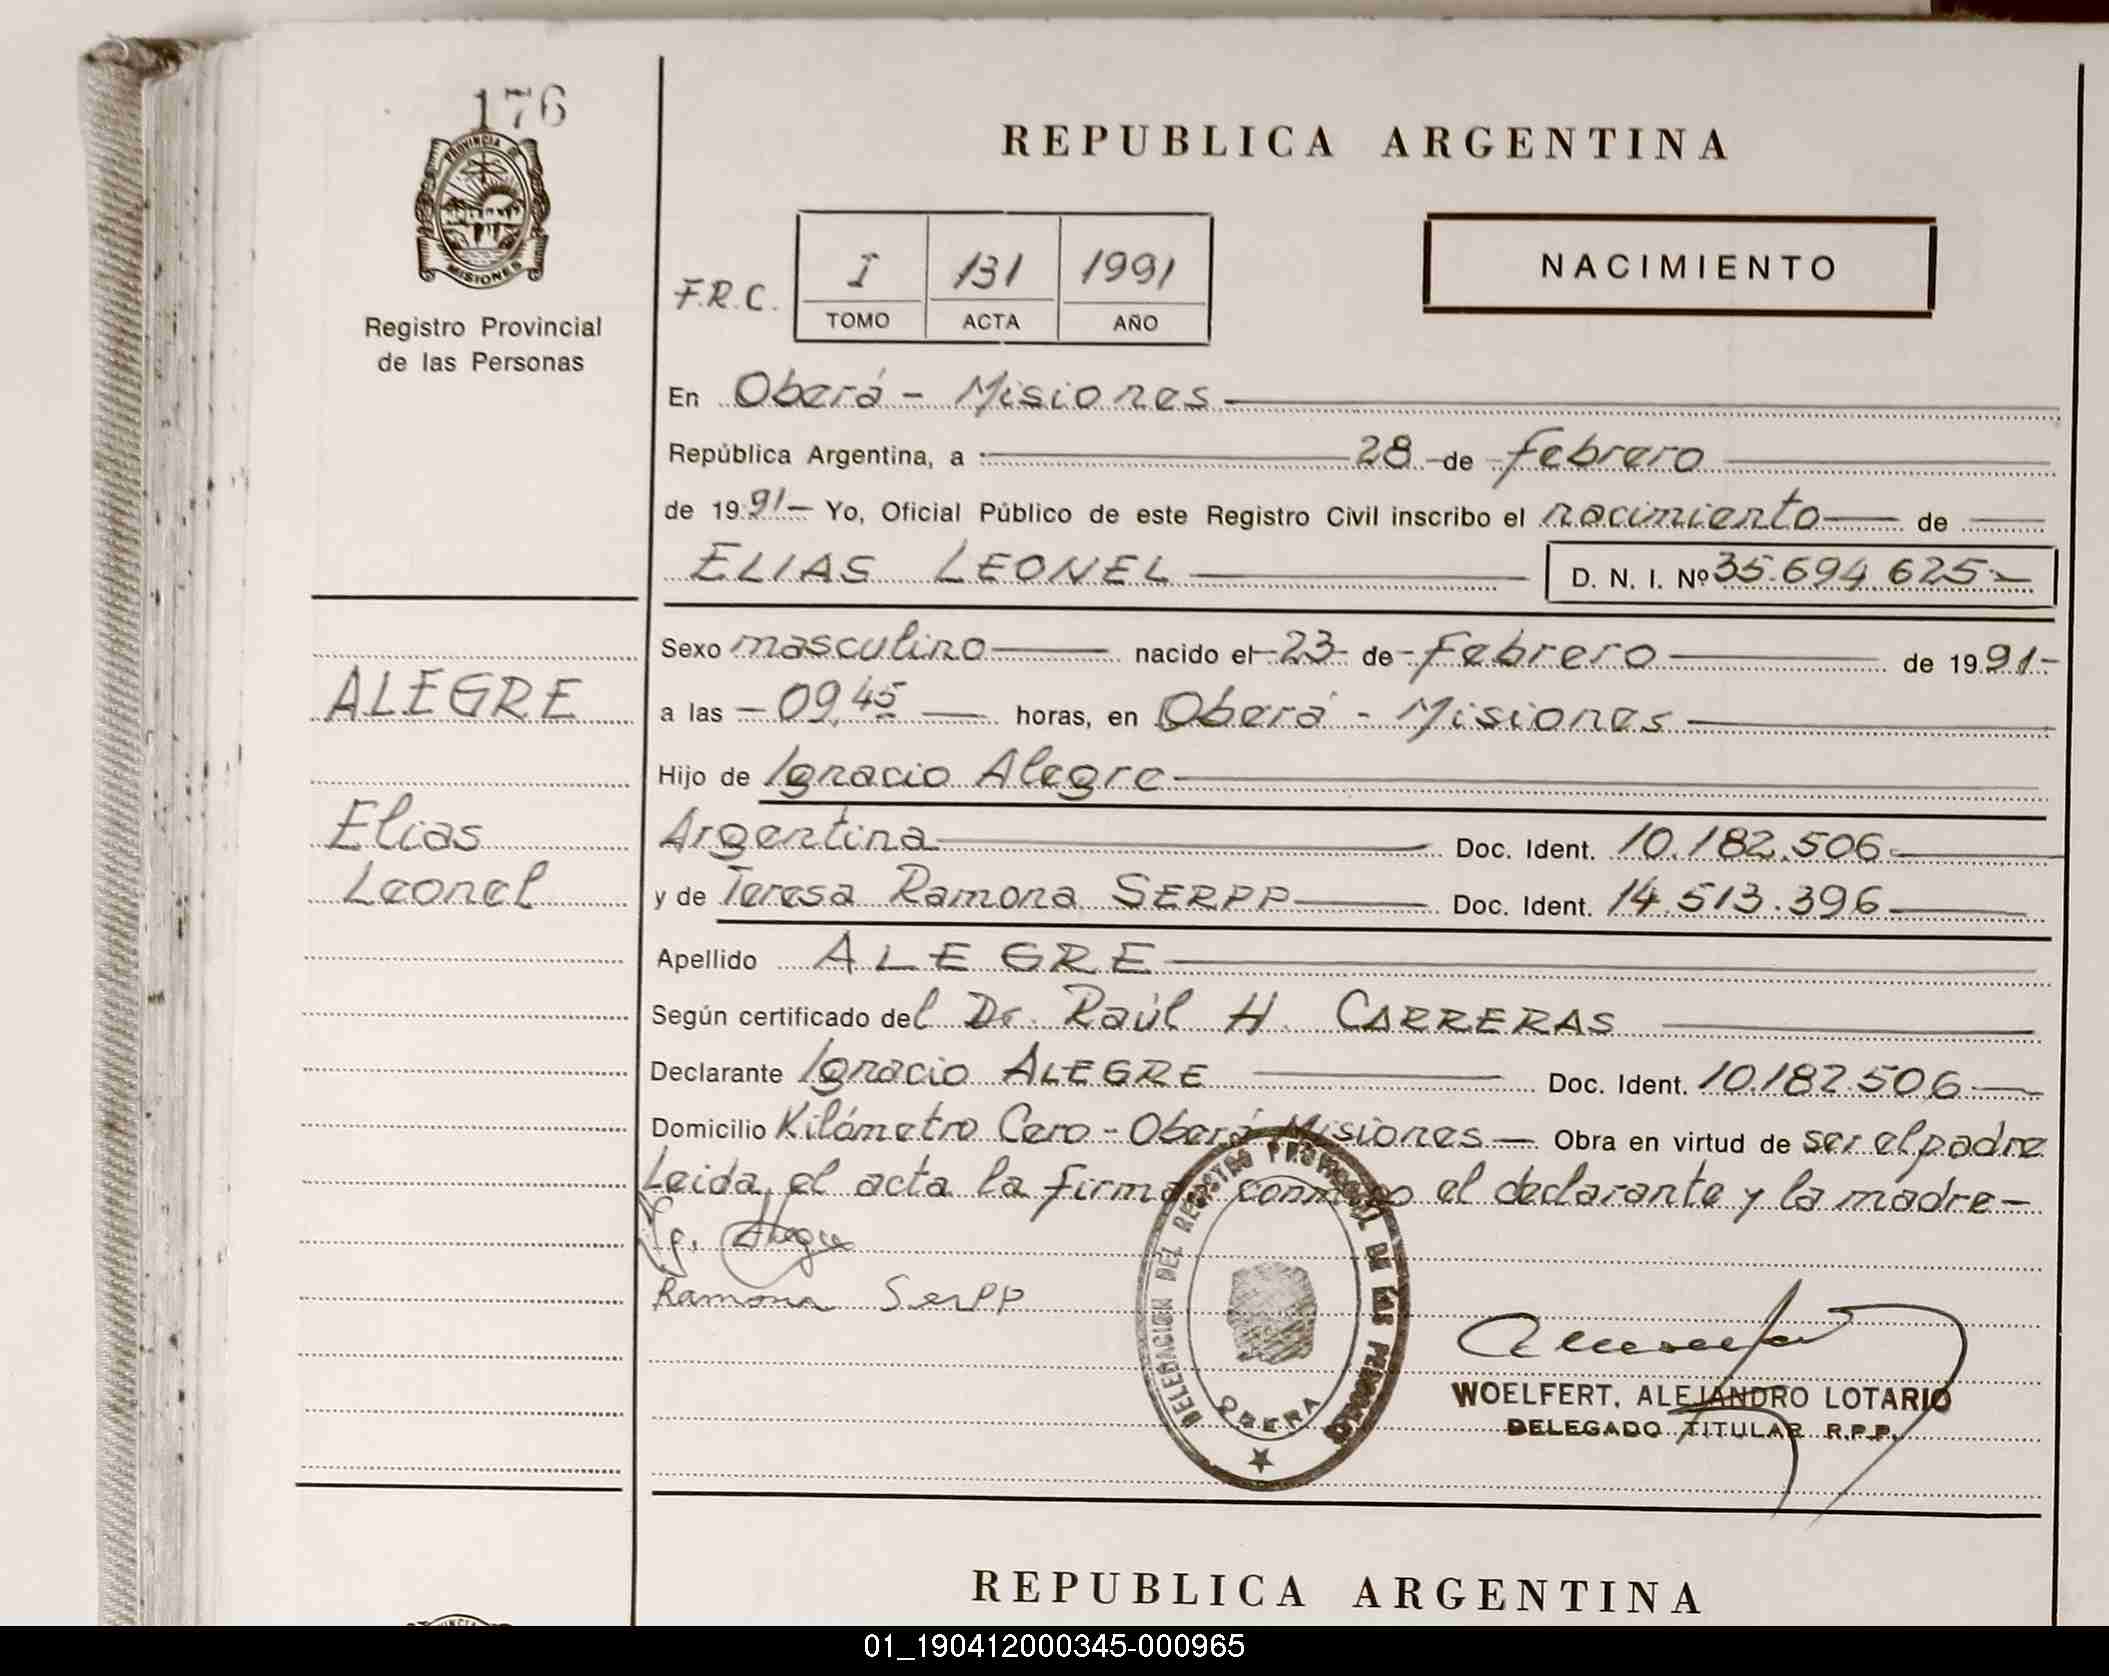 176
PROVINCIA DE
MISIONES
Registro Provincial
de las Personas
REPUBLICA ARGENTINA
NACIMIENTO
F.R.C.
I 131 1991
TOMO ACTA AÑO
En Oberá - Misiones
República Argentina, a 28 de Febrero
de 1991 Yo, Oficial Público de este Registro Civil inscribo el nacimiento de
ELIAS LEONEL D. N. I. Nº 35.694.625
Sexo masculino nacido el 23 de Febrero de 1991
ALEGRE
a las 09,45 horas, en Oberá - Misiones
Hijo de Ignacio Alegre
Elias
Argentina Doc. Ident. 10.182.506
Leonel
y de Teresa Ramona SERPP Doc. Ident. 14.513.396
Apellido ALEGRE
Según certificado del Dr. Raúl H. CARRERAS
Declarante Ignacio ALEGRE Doc. Ident. 10.182.506
Domicilio Kilómetro Cero - Oberá Misiones Obra en virtud de ser el padre
Leida, el acta la firma conmigo el declarante y la madre
Ig. Alegre
Ramona Serpp
DELEGACION DEL REGISTRO PROVINCIAL DE LAS PERSONAS
OBERA
WOELFERT, ALEJANDRO LOTARIO
DELEGADO TITULAR R.P.P.
REPUBLICA ARGENTINA
01_190412000345-000965